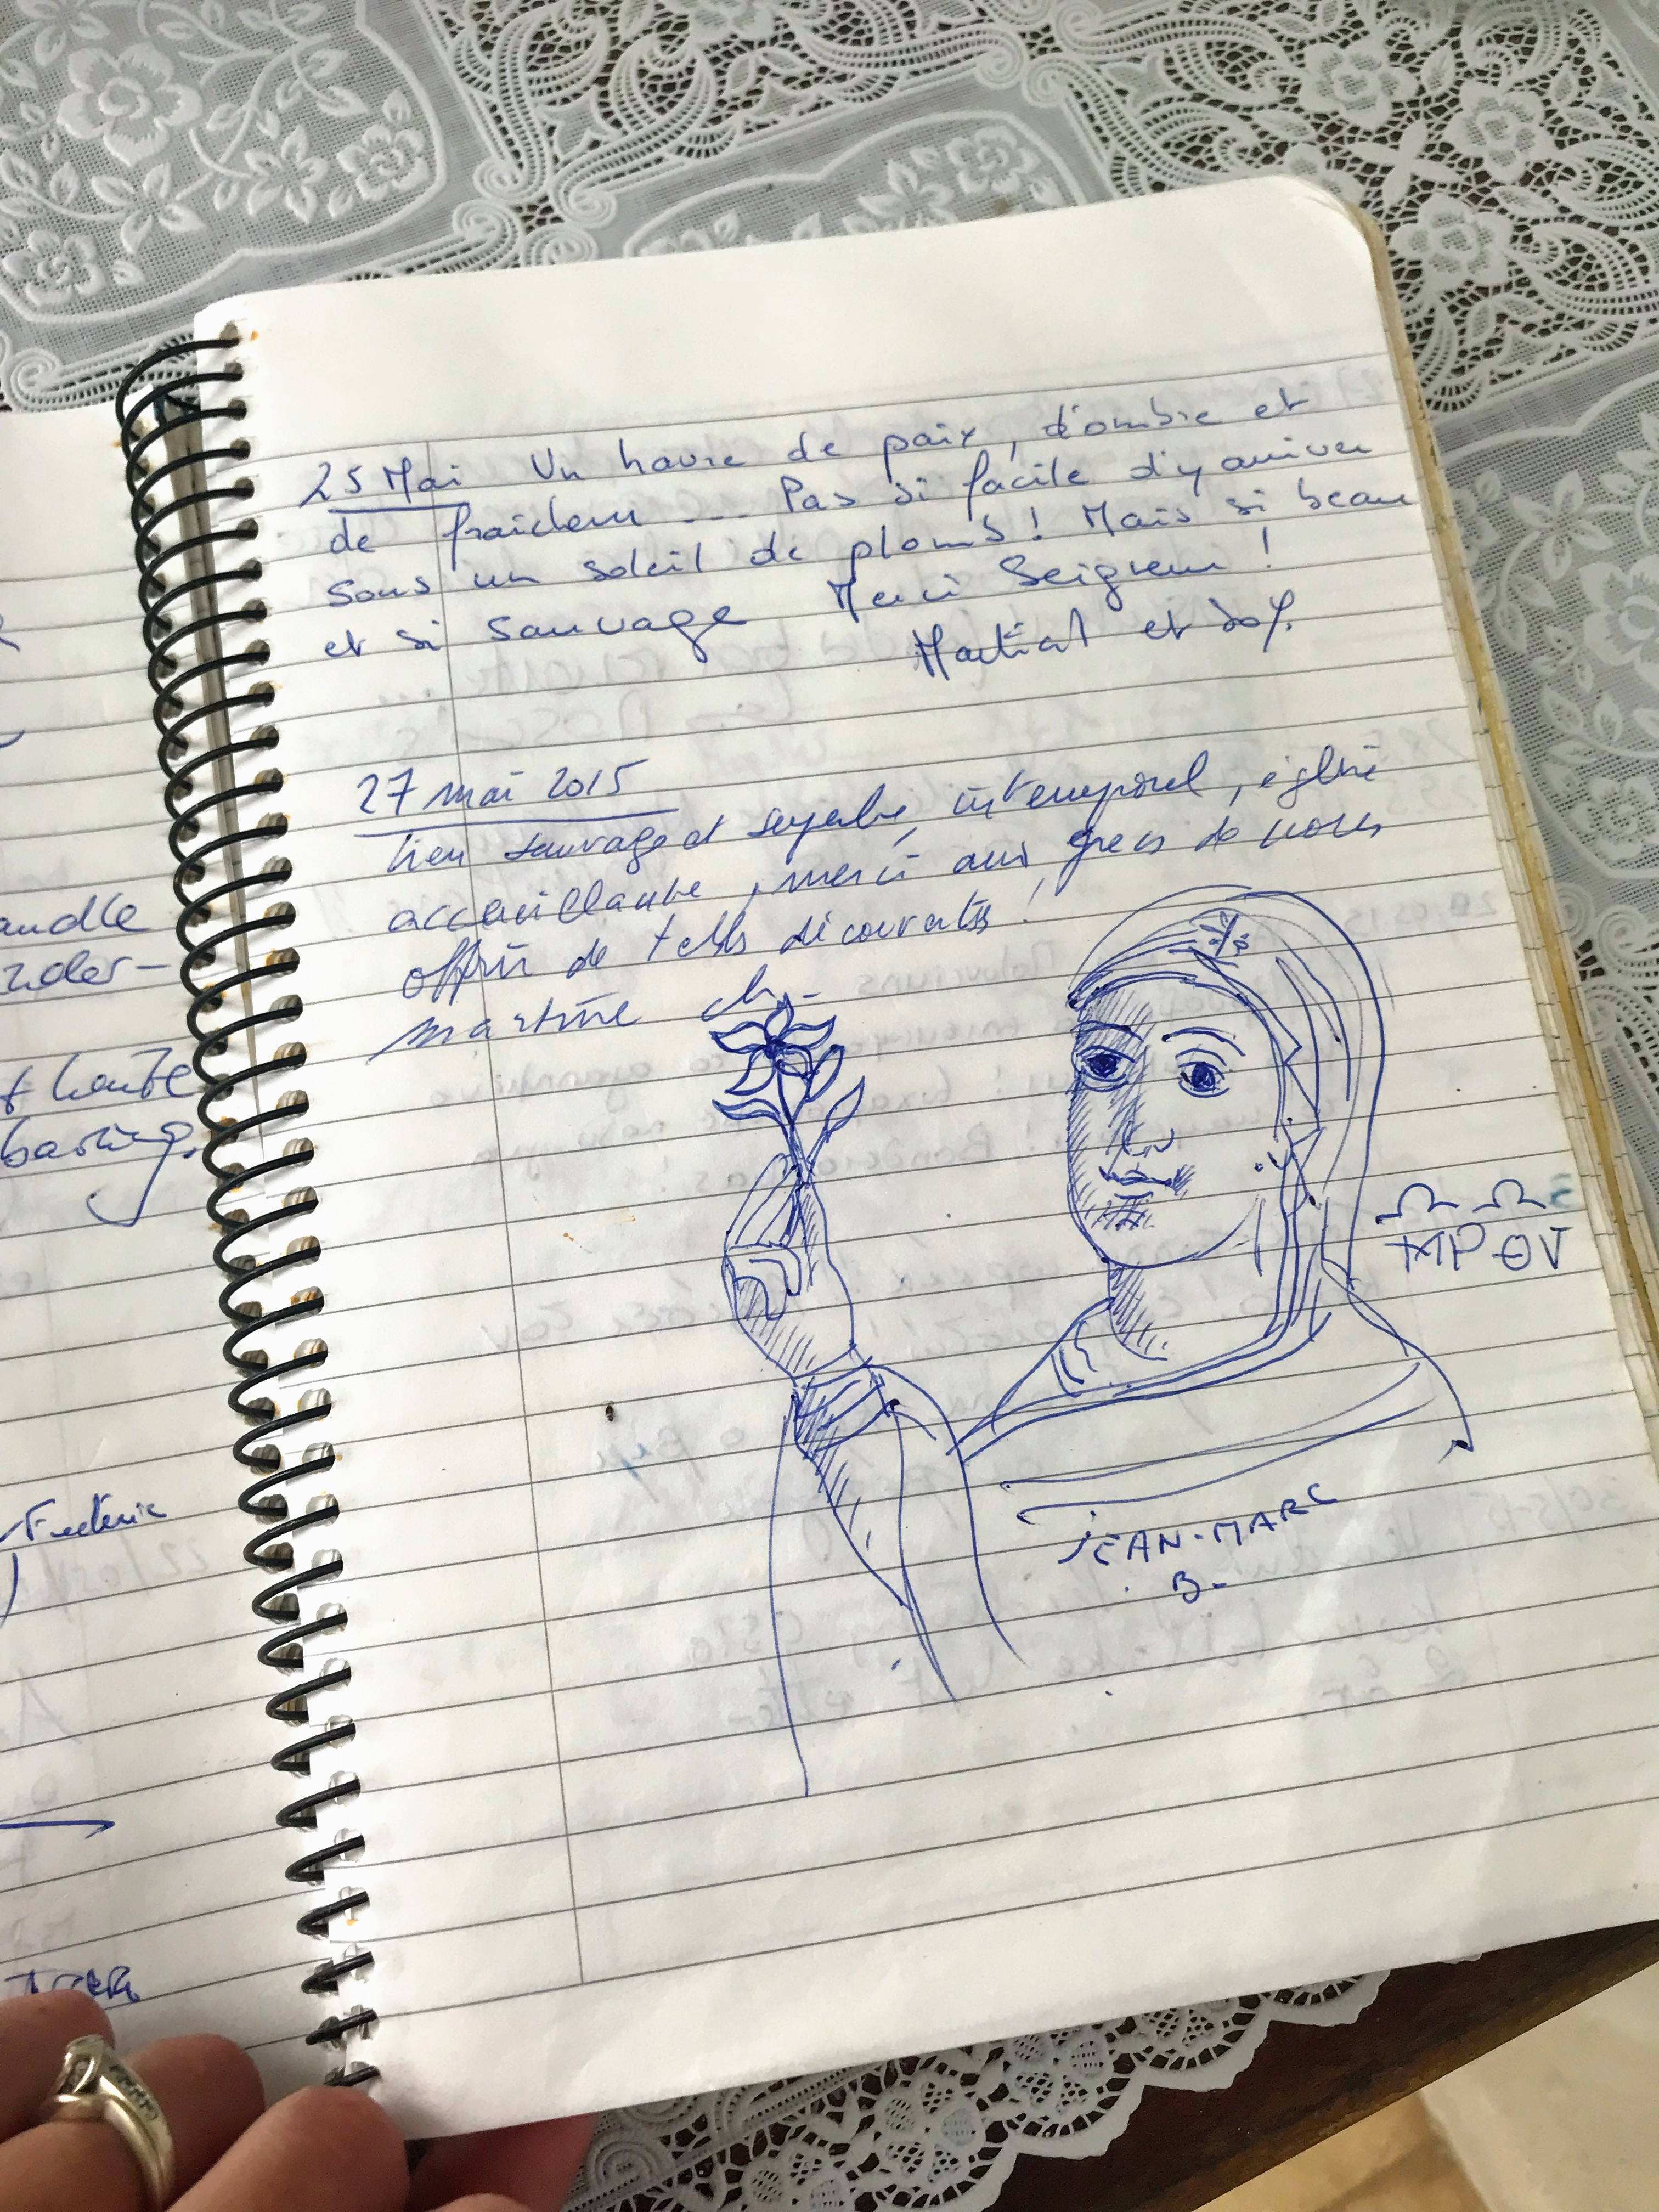 25 Mai Un havre de paix, d'ombre et
de fraîcheur ... Pas si facile d'y arriver
sous un soleil de plomb! Mais si beau
et si sauvage Merci Seigneur!
Martial et
27 mai 2015
lieu sauvage et superbe, intemporel, église
accueillante, merci aux grecs de nous
offrir de telles découvertes!
martine ch.
ΜΡ ΘV
JEAN-MARC
B-
andle
nder-
t heute
Frederic